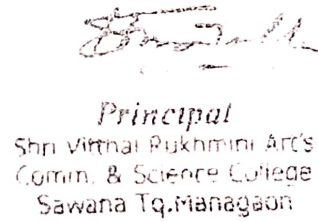 Principal
Shri Vitthal Rukhmini Art's
Comm. & Science College
Sawana Tq.Managaon